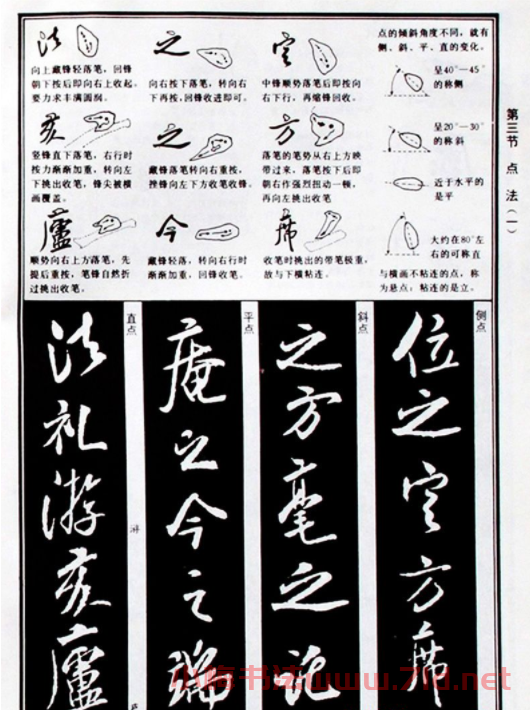 第三节 点法(一)
点的倾斜角度不同,就有
侧、斜、平、直的变化。
呈40°—45°
的称侧
呈20°—30°
的称斜
近于水平的
是平
大约在80°左
右的可称直
与横画不粘连的点,称
为悬点;粘连的是立。
法
向上藏锋轻落笔,回锋
朝下按后即向右上收起。
要力求丰满圆润。
之
向右按下落笔,转向右
下再按,回锋收进即可。
定
中锋顺势落笔后即按向
右下行,再缩锋回收。
亥
竖锋直下落笔,右行时
按力渐渐加重,转向左
下挑出收笔,锋尖被横
画覆盖。
之
藏锋落笔转向右重按,
挫锋向左下方收笔收锋。
方
落笔的笔势从右上方映
带过来,落笔按下后即
朝右作强烈扭动一顿,
再向左挑出收笔
廬
顺势向右上方落笔,先
提后重按,笔锋自然折
过挑出收笔。
今
藏锋轻落,转向右行时
渐渐加重,回锋收笔。
席
收笔时挑出的带笔极重,
故与下横粘连。
侧点
位之定方席
斜点
之方毫之说
平点
庵之今之端
直点
法礼游亥廬
游
小梅书法www.7id.net